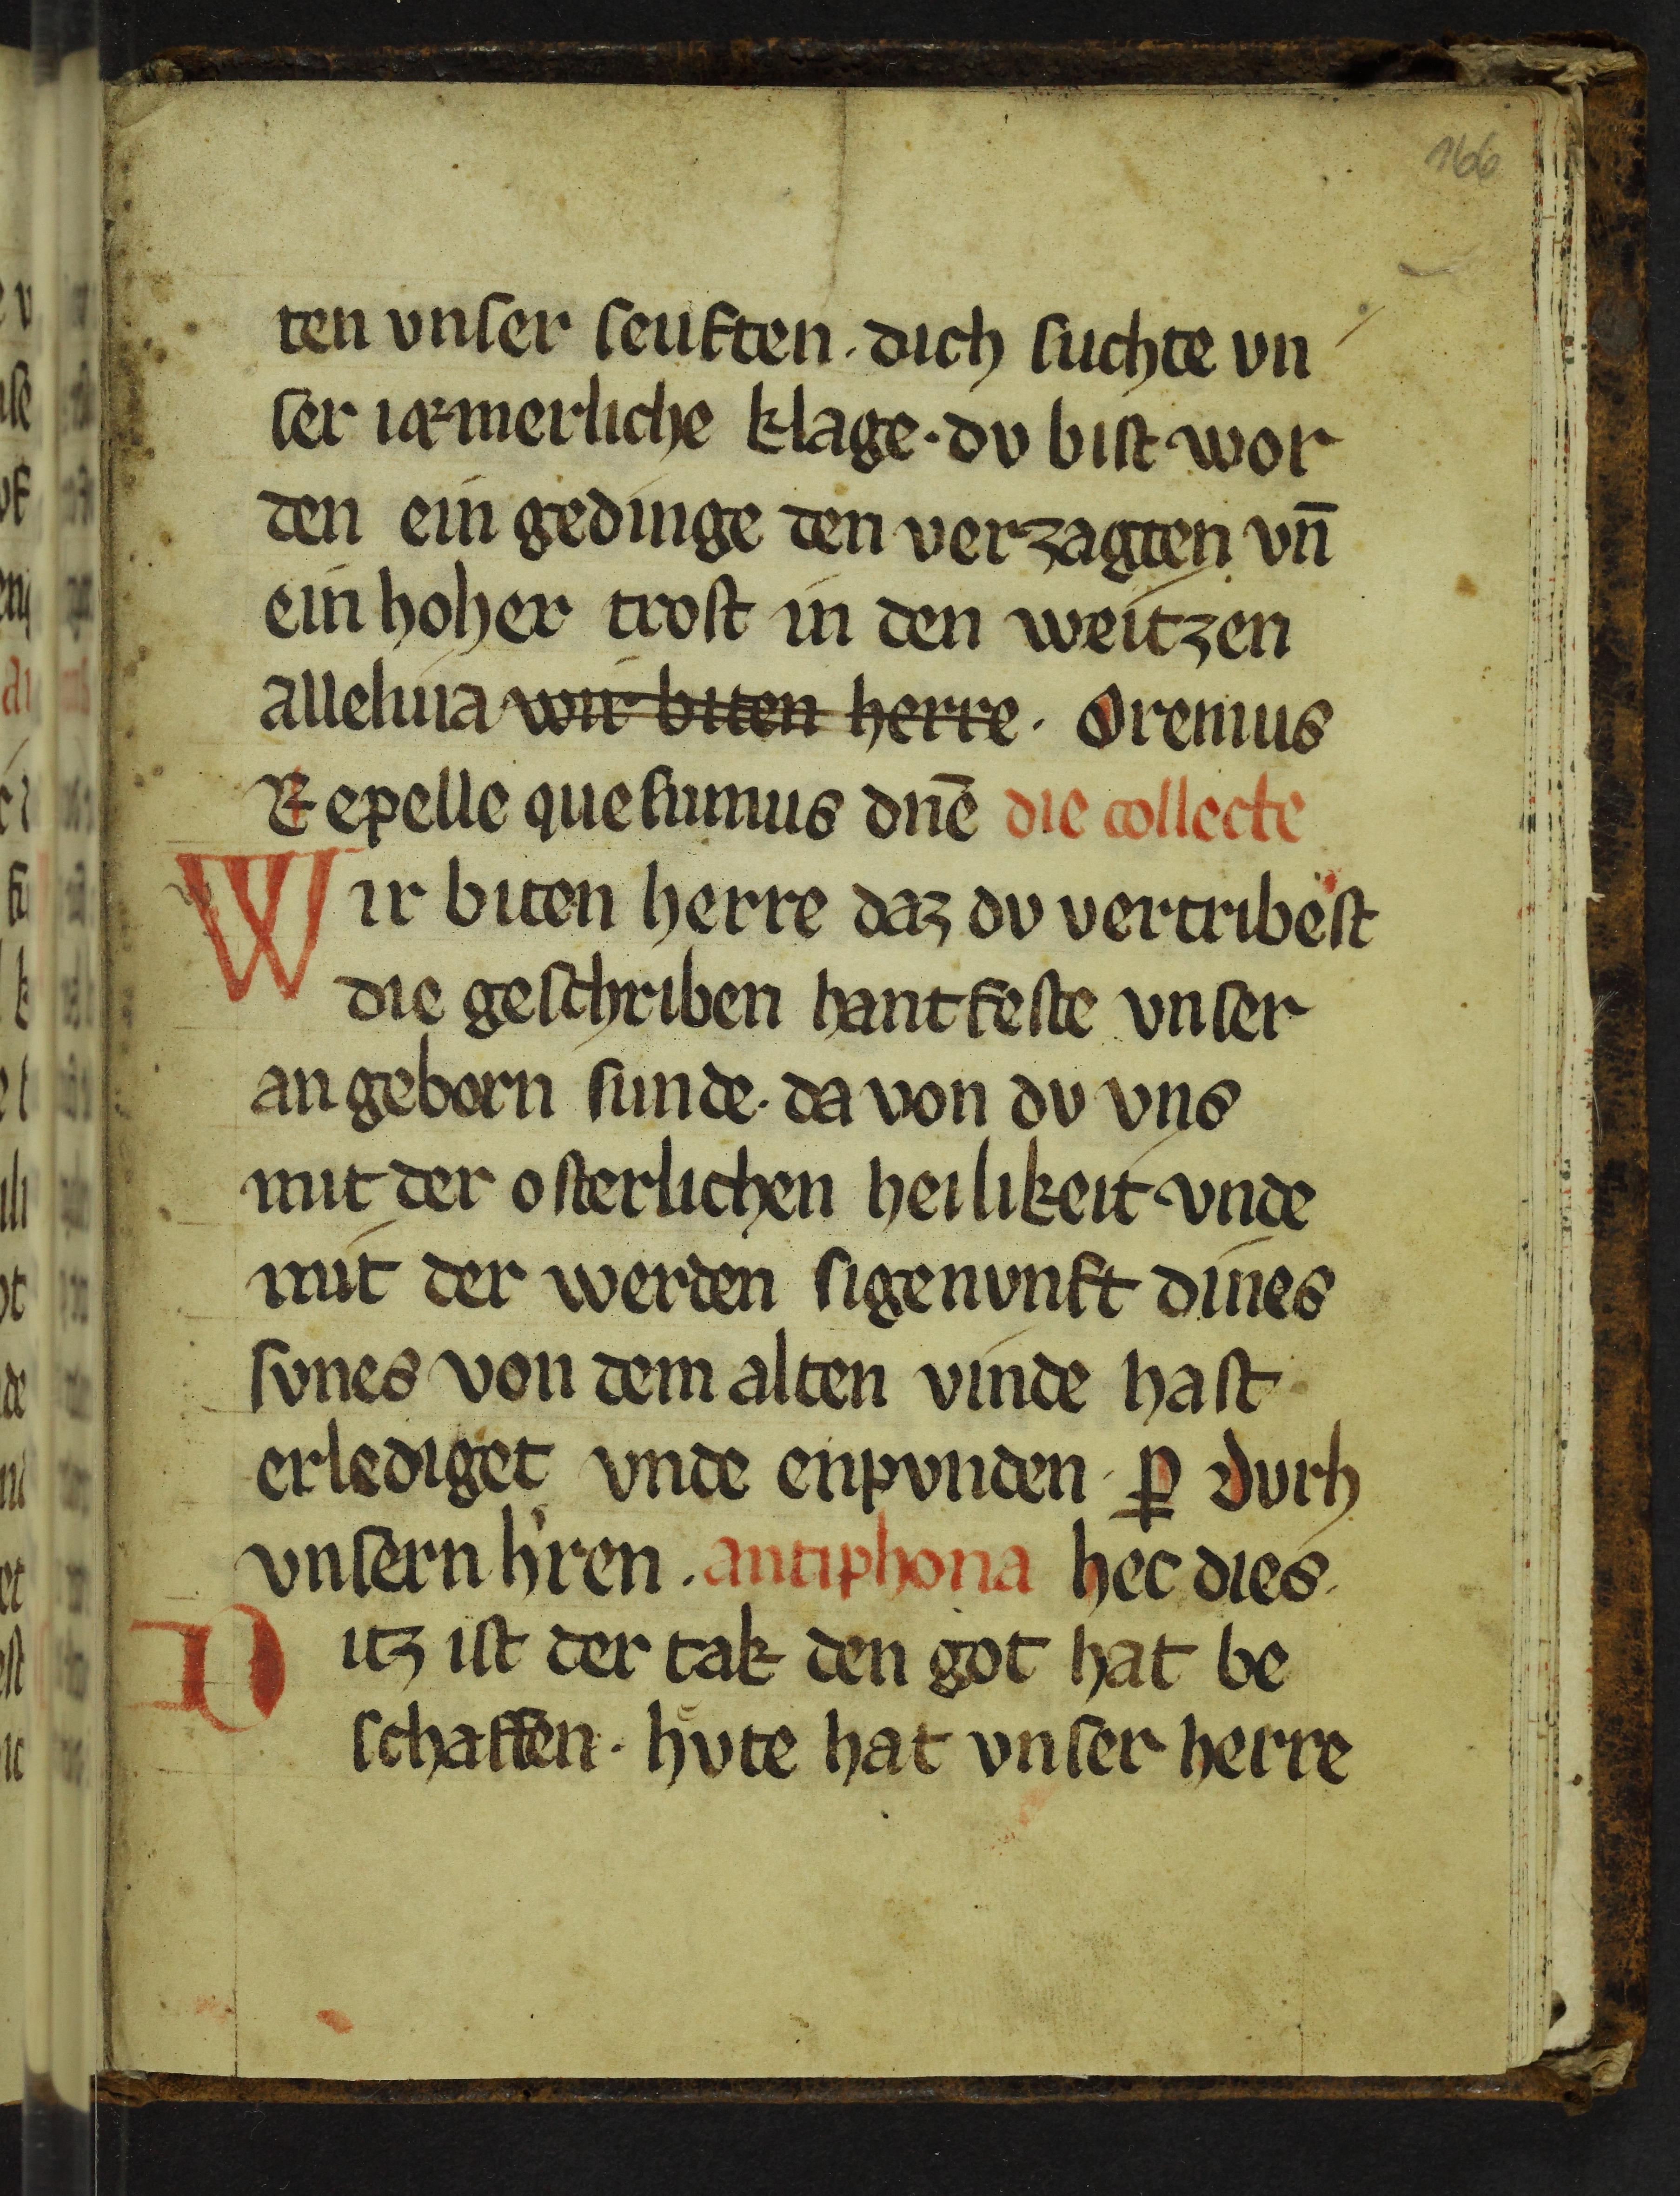 166
ten vnſer ſeuften · dich ſuchte vn
ſer iæmerliche klage · dv biſt wor
den ein gedinge den verzagten vn̄
ein hoher troſt in den weitzen
alleluia wir biten herre · Oremus
Repelle queſumus dn̄e die collecte
Wir biten herre daz dv vertribeſt
die geſchriben hantfeſte vnſer
an geborn ſunde · da von dv vns
mit der oſterlichen heilikeit vnde
mit der werden ſigenvnft dines
ſvnes von dem alten vinde haſt
erlediget vnde enpvnden · ꝑ Dvrh
vnſern h'ren · antiphona hec dies ·
Ditz iſt der tak den got hat be
ſchaffen · hv̆te hat vnſer herre